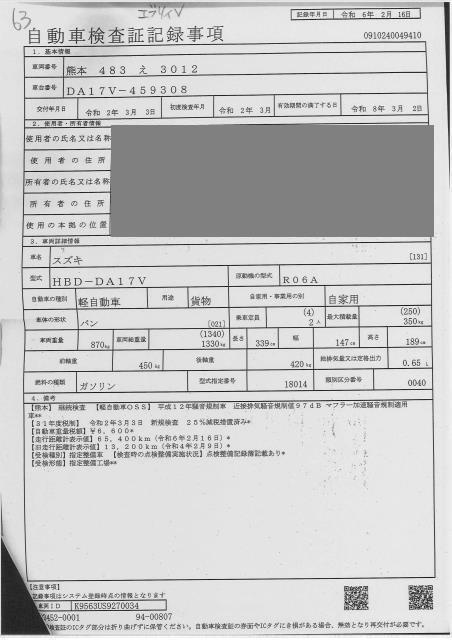 63
エブリイV
記録年月日 令和 6年 2月 16日
自動車検査証記録事項
0910240049410
1．基本情報
車両番号 熊本 483 え 3012
車台番号 DA17V-459308
交付年月日 令和 2年 3月 3日 初度検査年月 令和 2年 3月 有効期間の満了する日 令和 8年 3月 2日
2．使用者・所有者情報
使用者の氏名又は名称
使用者の住所
所有者の氏名又は名称
所有者の住所
使用の本拠の位置
3．車両詳細情報
車名 スズキ [131]
型式 HBD-DA17V 原動機の型式 R06A
自動車の種別 軽自動車 用途 貨物 自家用・事業用の別 自家用
車体の形状 バン [021] 乗車定員 (4) 2人 最大積載量 (250) 350kg
車両重量 870kg 車両総重量 (1340) 1330kg 長さ 339cm 幅 147cm 高さ 189cm
前軸重 450kg 後軸重 420kg 総排気量又は定格出力 0.65 L
燃料の種類 ガソリン 型式指定番号 18014 類別区分番号 0040
4．備考
【熊本】 継続検査 【軽自動車OSS】 平成12年騒音規制車 近接排気騒音規制値97dB マフラー加速騒音規制適用
車**
【31年度税制】 令和2年3月3日 新規検査 25%減税措置済み*
【自動車重量税額】￥6,600*
【走行距離計表示値】65,400km（令和6年2月16日）*
【旧走行距離計表示値】13,200km（令和4年2月9日）*
【受検種別】指定整備車 【検査時の点検整備実施状況】点検整備記録簿記載あり*
【受検形態】指定整備工場**
【注意事項】
記録事項はシステム登録時点の情報となります
車両ID K9563US9270034
3452-0001 94-00807
検査証のICタグ部分は折り曲げずに保管ください。自動車検査証の券面やICタグに気損がある場合、無効となり再交付が必要です。